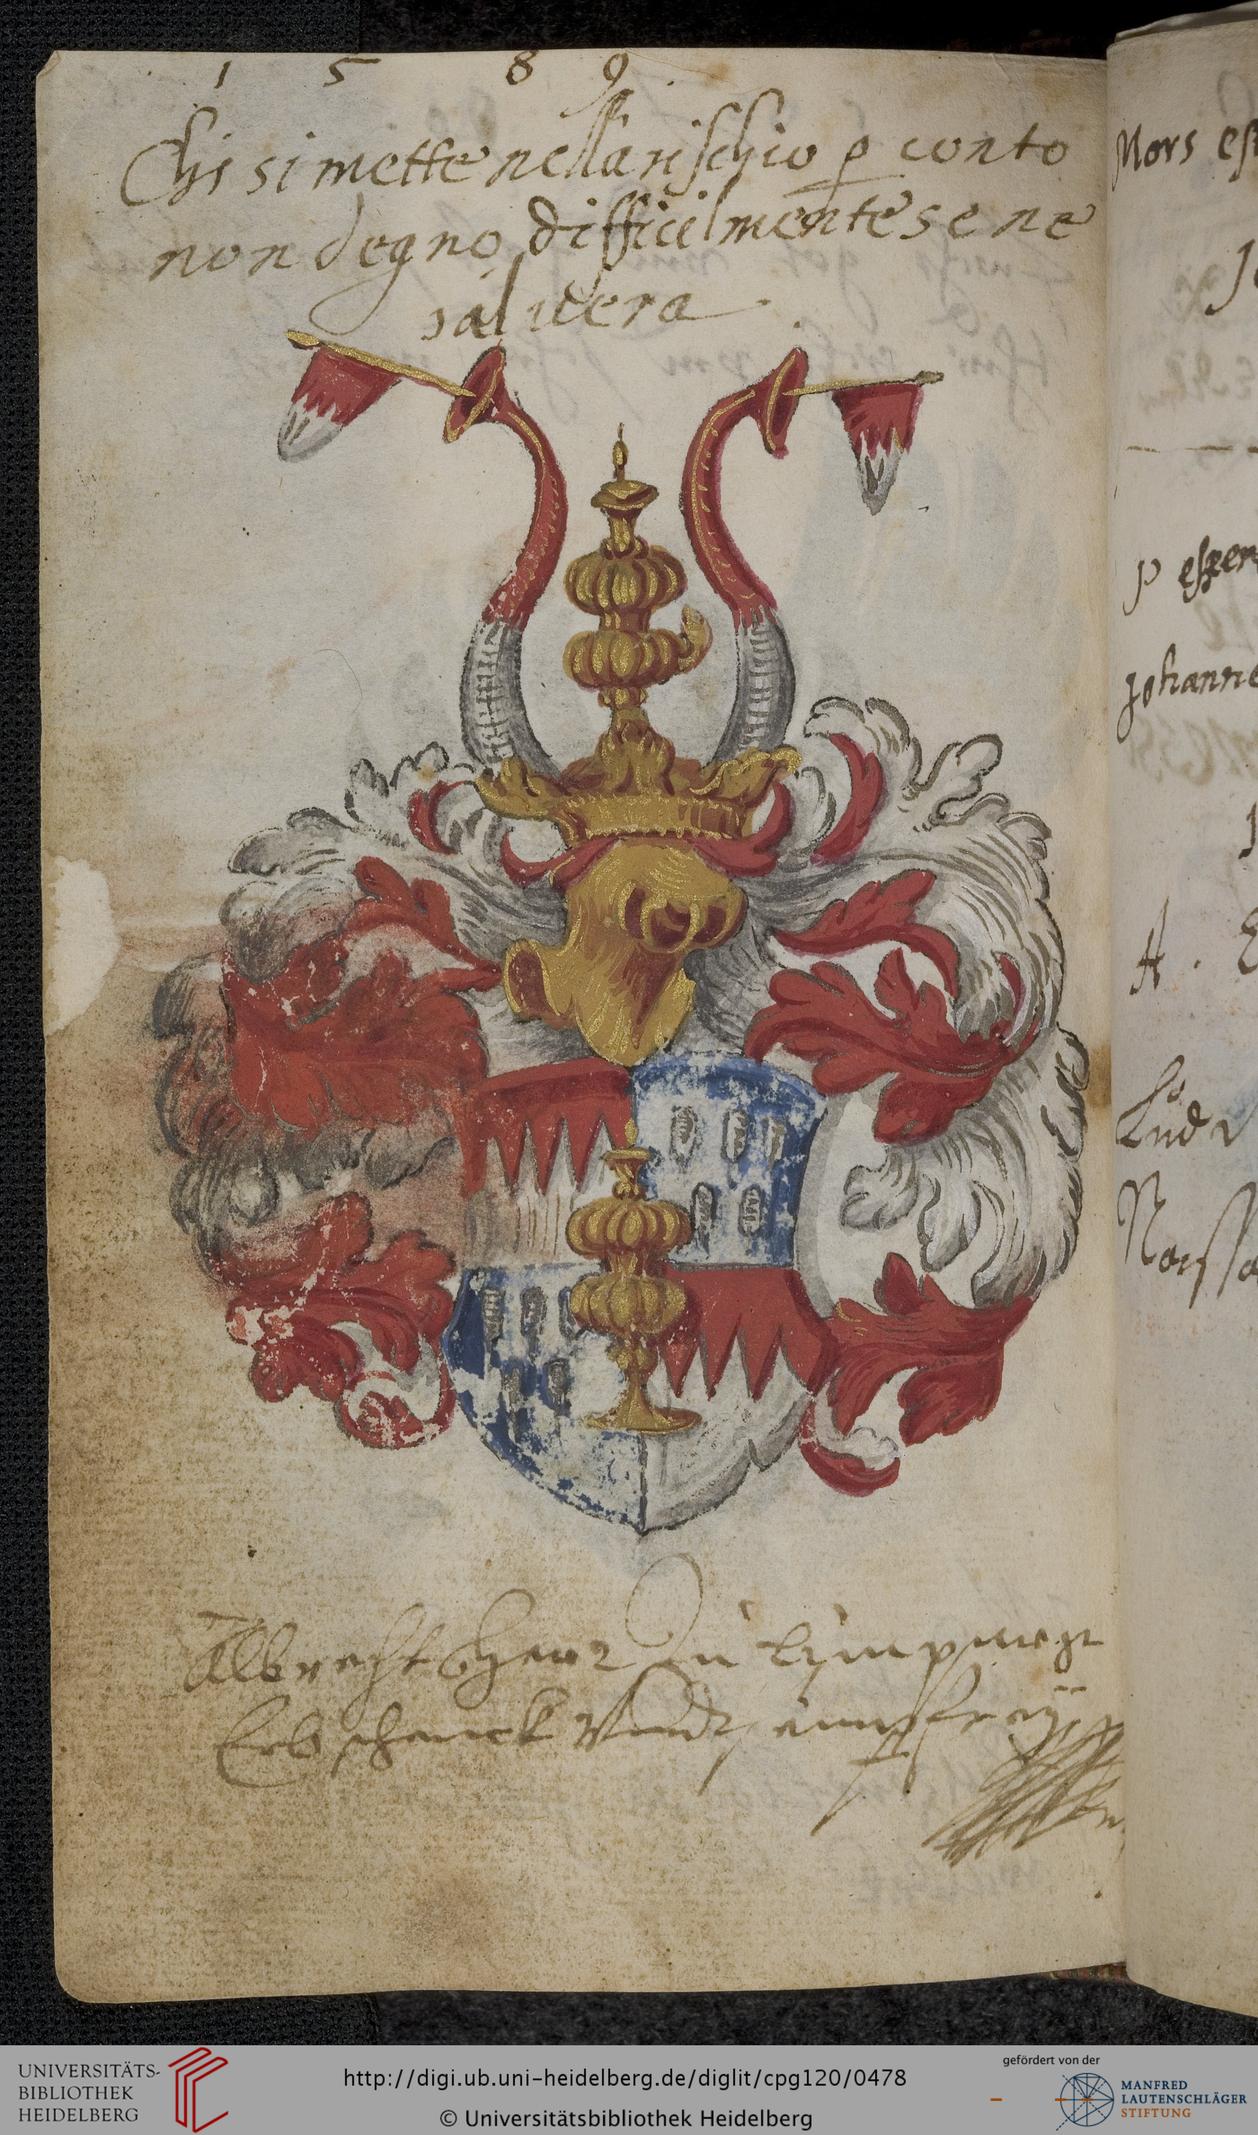 1 5 8 9
Chi si mette nella rischio ꝑ conto
non degno, difficilmente se ne
saluera
Albrecht Herr zu Limpurgk
Erbschenck Semperfrey
Mors est
P esper
Johanne
A.
Lud
UNIVERSITÄTS-
BIBLIOTHEK
HEIDELBERG
http://digi.ub.uni-heidelberg.de/diglit/cpg120/0478
© Universitätsbibliothek Heidelberg
gefördert von der
MANFRED
LAUTENSCHLÄGER
STIFTUNG